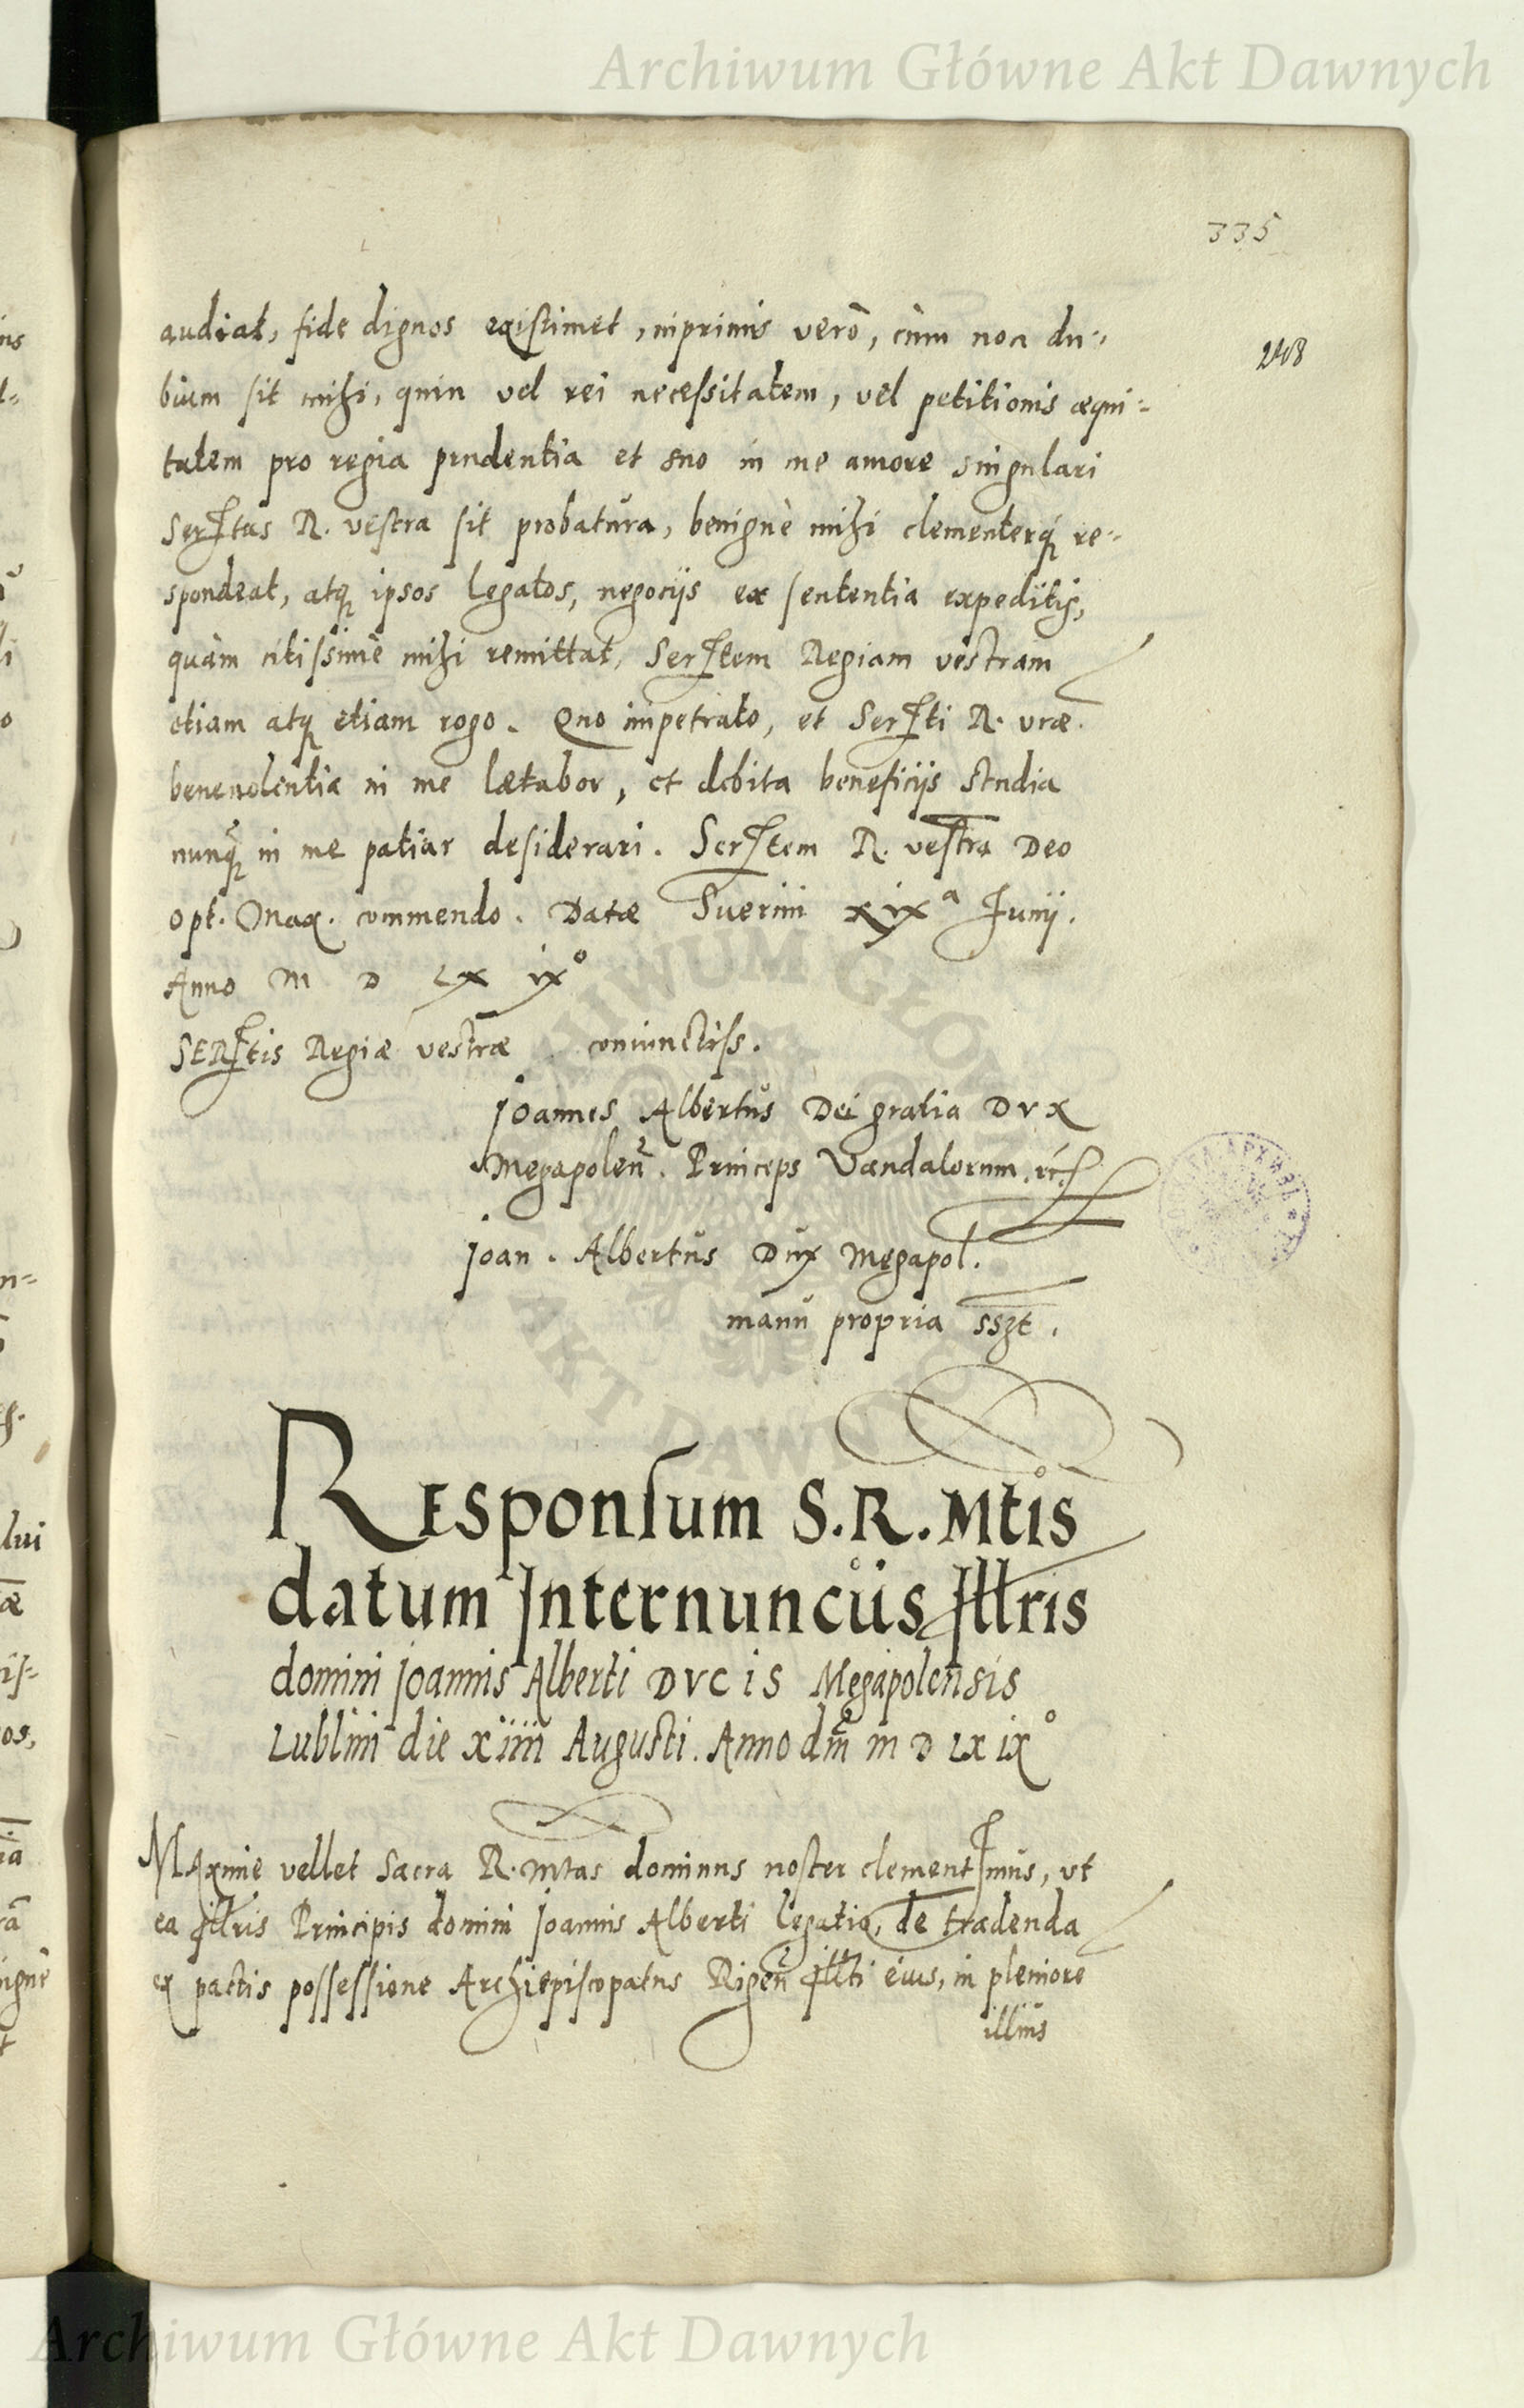 Archiwum Główne Akt Dawnych
335
248
audiat, fide dignos existimet, inprimis verò, cùm non du-
bium sit mihi, quin vel rei necessitatem, vel petitionis æqui-
tatem pro regia prudentia et suo in me amore singulari
Serƒtas R. vestra sit probatura, benignè mihi clementerq́ re-
spondeat, atq ipsos legatos, negocijs ex sententia expeditis,
quàm citissimè mihi remittat, Serƒtem Regiam vestram
etiam atq etiam rogo. Quo impetrato, et Serƒti R. vræ
benevolentia in me lætabor, et debita beneficijs studia
nunq̃ in me patiar desiderari. Serƒtem R. vestrã Deo
Opt. Max. commendo. Datæ Suerini xixᵃ Junij.
Anno M D LX ixº
SERƒtis Regiæ vestræ coniunctiss.
Joannes Albertus Dei gratia DVX
Megapoleñ. Princeps Vandalorum, etc.
Joan. Albertus Dux Megapol.
manu propria sszt.
Responsum S.R. Mtis
datum Internuncijs Jllris
domini Joannis Alberti DVCIS Megapolensis
Lublini die xiiii Augusti. Anno dñi M D LX ixº
Maximè vellet Sacra R. Mtas dominus noster clementƒimus, ut
ea Jllris Principis domini Joannis Alberti legatio, de tradenda
ex pactis possessione Archiepiscopatus Rigeñ Jllti eius, in pleniore
illius
Archiwum Główne Akt Dawnych